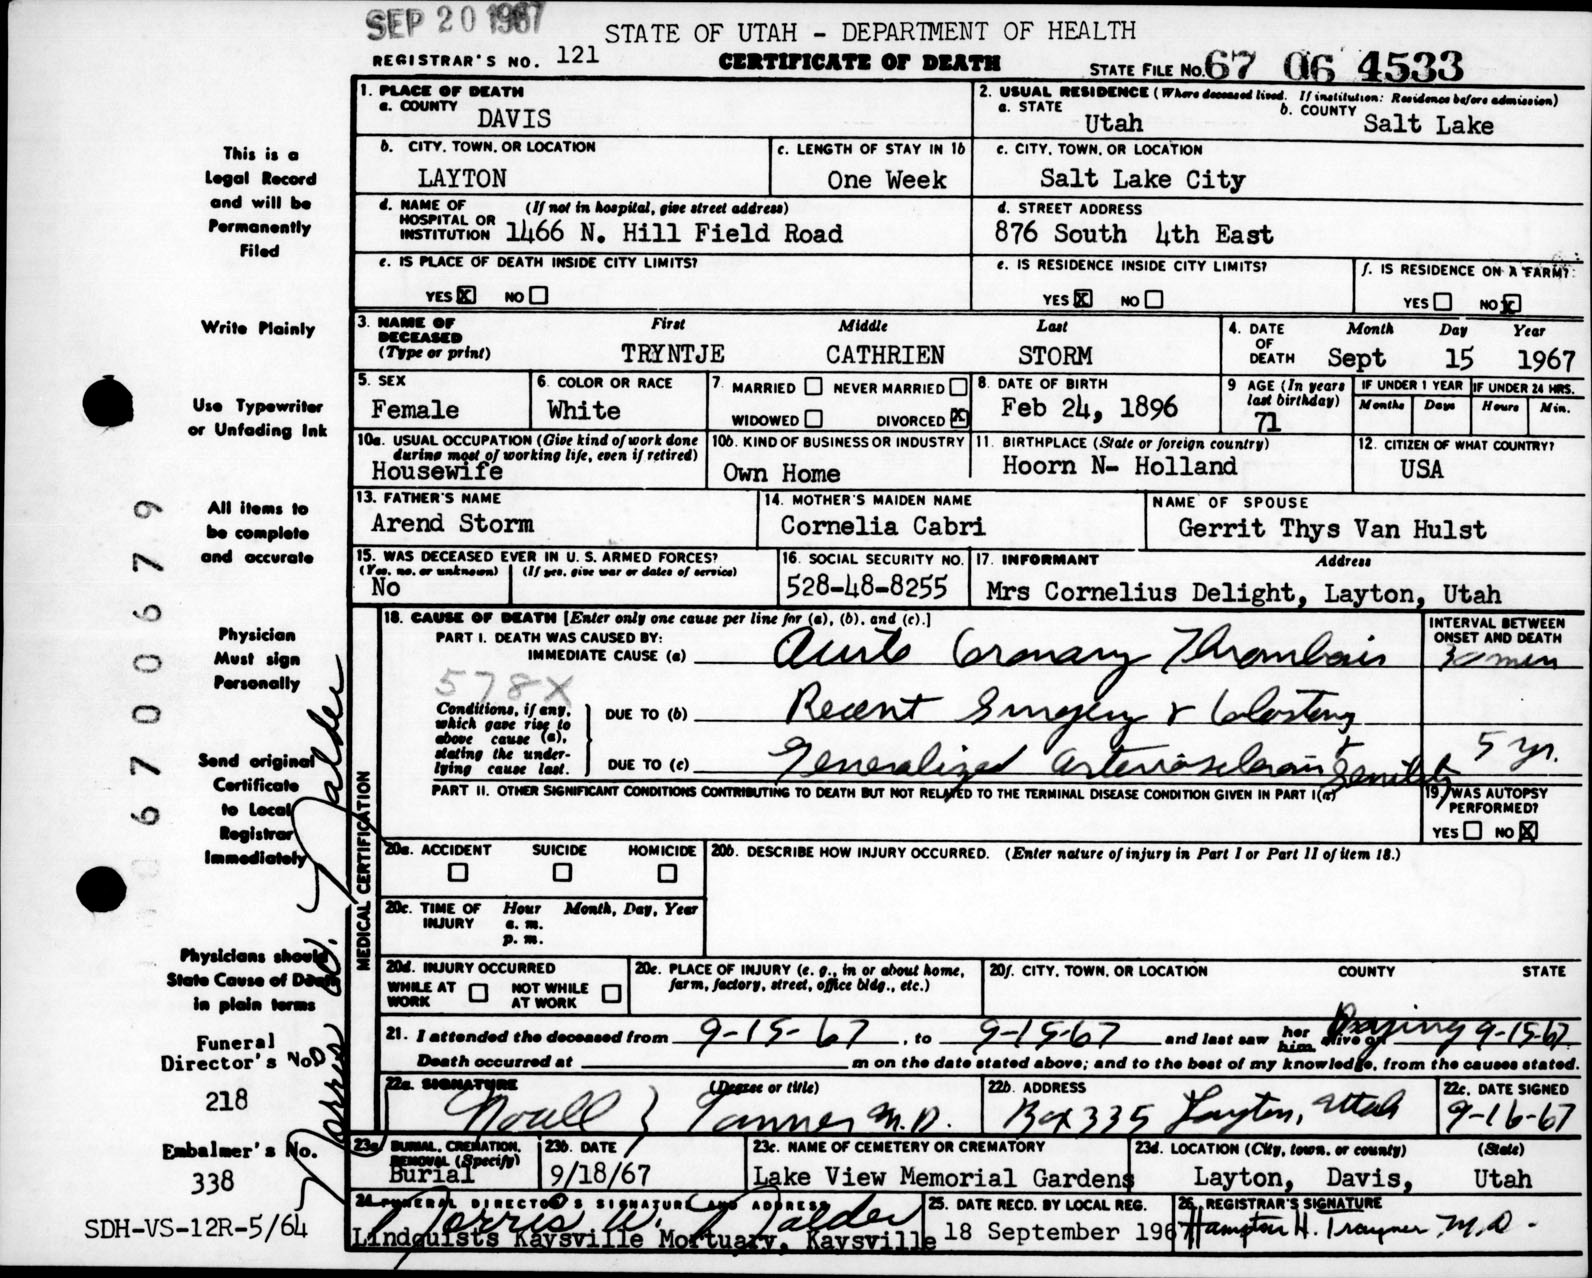 SEP 20 1967
STATE OF UTAH - DEPARTMENT OF HEALTH
REGISTRAR'S NO. 121
CERTIFICATE OF DEATH
STATE FILE NO. 67 06 4533
1. PLACE OF DEATH
a. COUNTY DAVIS
2. USUAL RESIDENCE (Where deceased lived. If institution: Residence before admission)
a. STATE Utah b. COUNTY Salt Lake
b. CITY, TOWN, OR LOCATION LAYTON
c. LENGTH OF STAY IN 1b One Week
c. CITY, TOWN, OR LOCATION Salt Lake City
d. NAME OF HOSPITAL OR INSTITUTION (If not in hospital, give street address) 1466 N. Hill Field Road
d. STREET ADDRESS 876 South 4th East
e. IS PLACE OF DEATH INSIDE CITY LIMITS?
YES X NO
e. IS RESIDENCE INSIDE CITY LIMITS?
YES X NO
f. IS RESIDENCE ON A FARM?
YES NO X
3. NAME OF DECEASED (Type or print)
First Middle Last
TRYNTJE CATHRIEN STORM
4. DATE OF DEATH Month Day Year
Sept 15 1967
5. SEX Female
6. COLOR OR RACE White
7. MARRIED NEVER MARRIED
WIDOWED DIVORCED X
8. DATE OF BIRTH Feb 24, 1896
9 AGE (In years last birthday) 71
IF UNDER 1 YEAR Months Days
IF UNDER 24 HRS. Hours Min.
10a. USUAL OCCUPATION (Give kind of work done during most of working life, even if retired)
Housewife
10b. KIND OF BUSINESS OR INDUSTRY
Own Home
11. BIRTHPLACE (State or foreign country)
Hoorn N- Holland
12. CITIZEN OF WHAT COUNTRY?
USA
13. FATHER'S NAME
Arend Storm
14. MOTHER'S MAIDEN NAME
Cornelia Cabri
NAME OF SPOUSE
Gerrit Thys Van Hulst
15. WAS DECEASED EVER IN U. S. ARMED FORCES?
(Yes, no, or unknown) (If yes, give war or dates of service)
No
16. SOCIAL SECURITY NO.
528-48-8255
17. INFORMANT Address
Mrs Cornelius Delight, Layton, Utah
MEDICAL CERTIFICATION
18. CAUSE OF DEATH [Enter only one cause per line for (a), (b), and (c).]
INTERVAL BETWEEN ONSET AND DEATH
PART I. DEATH WAS CAUSED BY:
IMMEDIATE CAUSE (a) Acute Coronary Thrombosis 30 min
578X
Conditions, if any, which gave rise to above cause (a), stating the underlying cause last.
DUE TO (b) Recent Surgery &
DUE TO (c) Generalized arteriosclerosis & Senility 5 yr.
PART II. OTHER SIGNIFICANT CONDITIONS CONTRIBUTING TO DEATH BUT NOT RELATED TO THE TERMINAL DISEASE CONDITION GIVEN IN PART I(a)
19. WAS AUTOPSY PERFORMED?
YES NO X
20a. ACCIDENT SUICIDE HOMICIDE
20b. DESCRIBE HOW INJURY OCCURRED. (Enter nature of injury in Part I or Part II of item 18.)
20c. TIME OF INJURY Hour Month, Day, Year
a. m.
p. m.
20d. INJURY OCCURRED
WHILE AT WORK NOT WHILE AT WORK
20e. PLACE OF INJURY (e. g., in or about home, farm, factory, street, office bldg., etc.)
20f. CITY, TOWN, OR LOCATION COUNTY STATE
21. I attended the deceased from 9-15-67, to 9-15-67 and last saw her him alive on 9-15-67
Death occurred at m on the date stated above; and to the best of my knowledge, from the causes stated.
22a. SIGNATURE (Degree or title)
Noall Z Tanner M.D.
22b. ADDRESS
Box 335 Layton, Utah
22c. DATE SIGNED
9-16-67
23a. BURIAL, CREMATION, REMOVAL (Specify)
Burial
23b. DATE
9/18/67
23c. NAME OF CEMETERY OR CREMATORY
Lake View Memorial Gardens
23d. LOCATION (City, town, or county) (State)
Layton, Davis, Utah
24. FUNERAL DIRECTOR'S SIGNATURE AND ADDRESS
Norris W. Nalder
Lindquists Kaysville Mortuary, Kaysville
25. DATE RECD. BY LOCAL REG.
18 September 1967
26. REGISTRAR'S SIGNATURE
Hampton H. Trayner M.D.
This is a
Legal Record
and will be
Permanently
Filed
Write Plainly
Use Typewriter
or Unfading Ink
All items to
be complete
and accurate
Physician
Must sign
Personally
Send original
Certificate
to Local
Registrar
Immediately
Physicians should
State Cause of Death
in plain terms
Funeral
Director's No.
218
Embalmer's No.
338
SDH-VS-12R-5/64
Norris W. Nalder